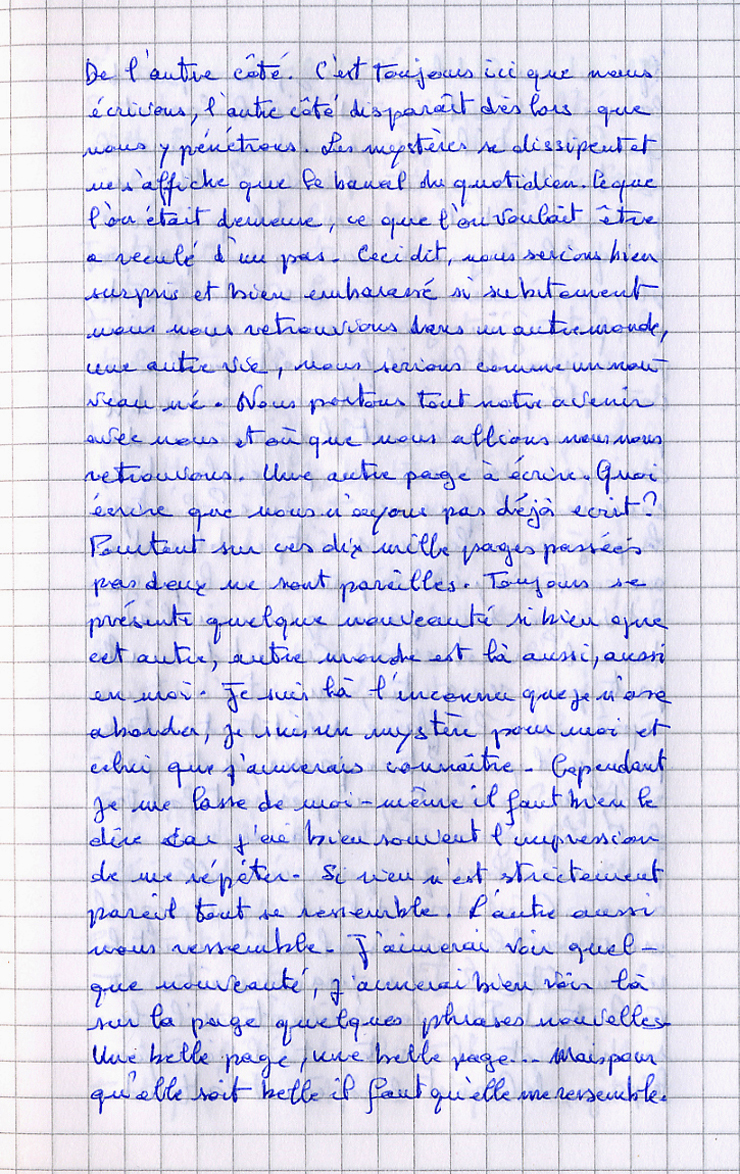 De l'autre côté. C'est toujours ici que nous
écrivons, l'autre côté disparaît dès lors que
nous y pénétrons. Les mystères se dissipent et
ne s'affiche que le banal du quotidien. Ce que
l'on était demeure, ce que l'on voulait être
a reculé d'un pas. Ceci dit, nous serions bien
surpris et bien embarassé si subitement
nous nous retrouvions dans un autre monde,
une autre vie, nous serions comme un nou
veau né. Nous portons tout notre avenir
avec nous et où que nous allions nous nous
retrouvons. Une autre page à écrire. Quoi
écrire que nous n'ayons pas déjà ecrit?
Pourtant sur ces dix mille pages passées
pas deux ne sont pareilles. Toujours se
présente quelque nouveauté si bien que
cet autre, autre monde est là aussi, aussi
en moi. Je suis là l'inconnu que je n'ose
aborder, je suis un mystère pour moi et
celui que j'aimerais connaître. Cependant
je me lasse de moi-même il faut bien le
dire car j'ai bien souvent l'impression
de me répéter. Si rien n'est strictement
pareil tout se ressemble. L'autre aussi
nous ressemble. J'aimerai voir quel-
que nouveauté, j'aimerai bien voir là
sur la page quelques phrases nouvelles.
Une belle page, une belle page... Mais pour
qu'elle soit belle il faut qu'elle me ressemble.